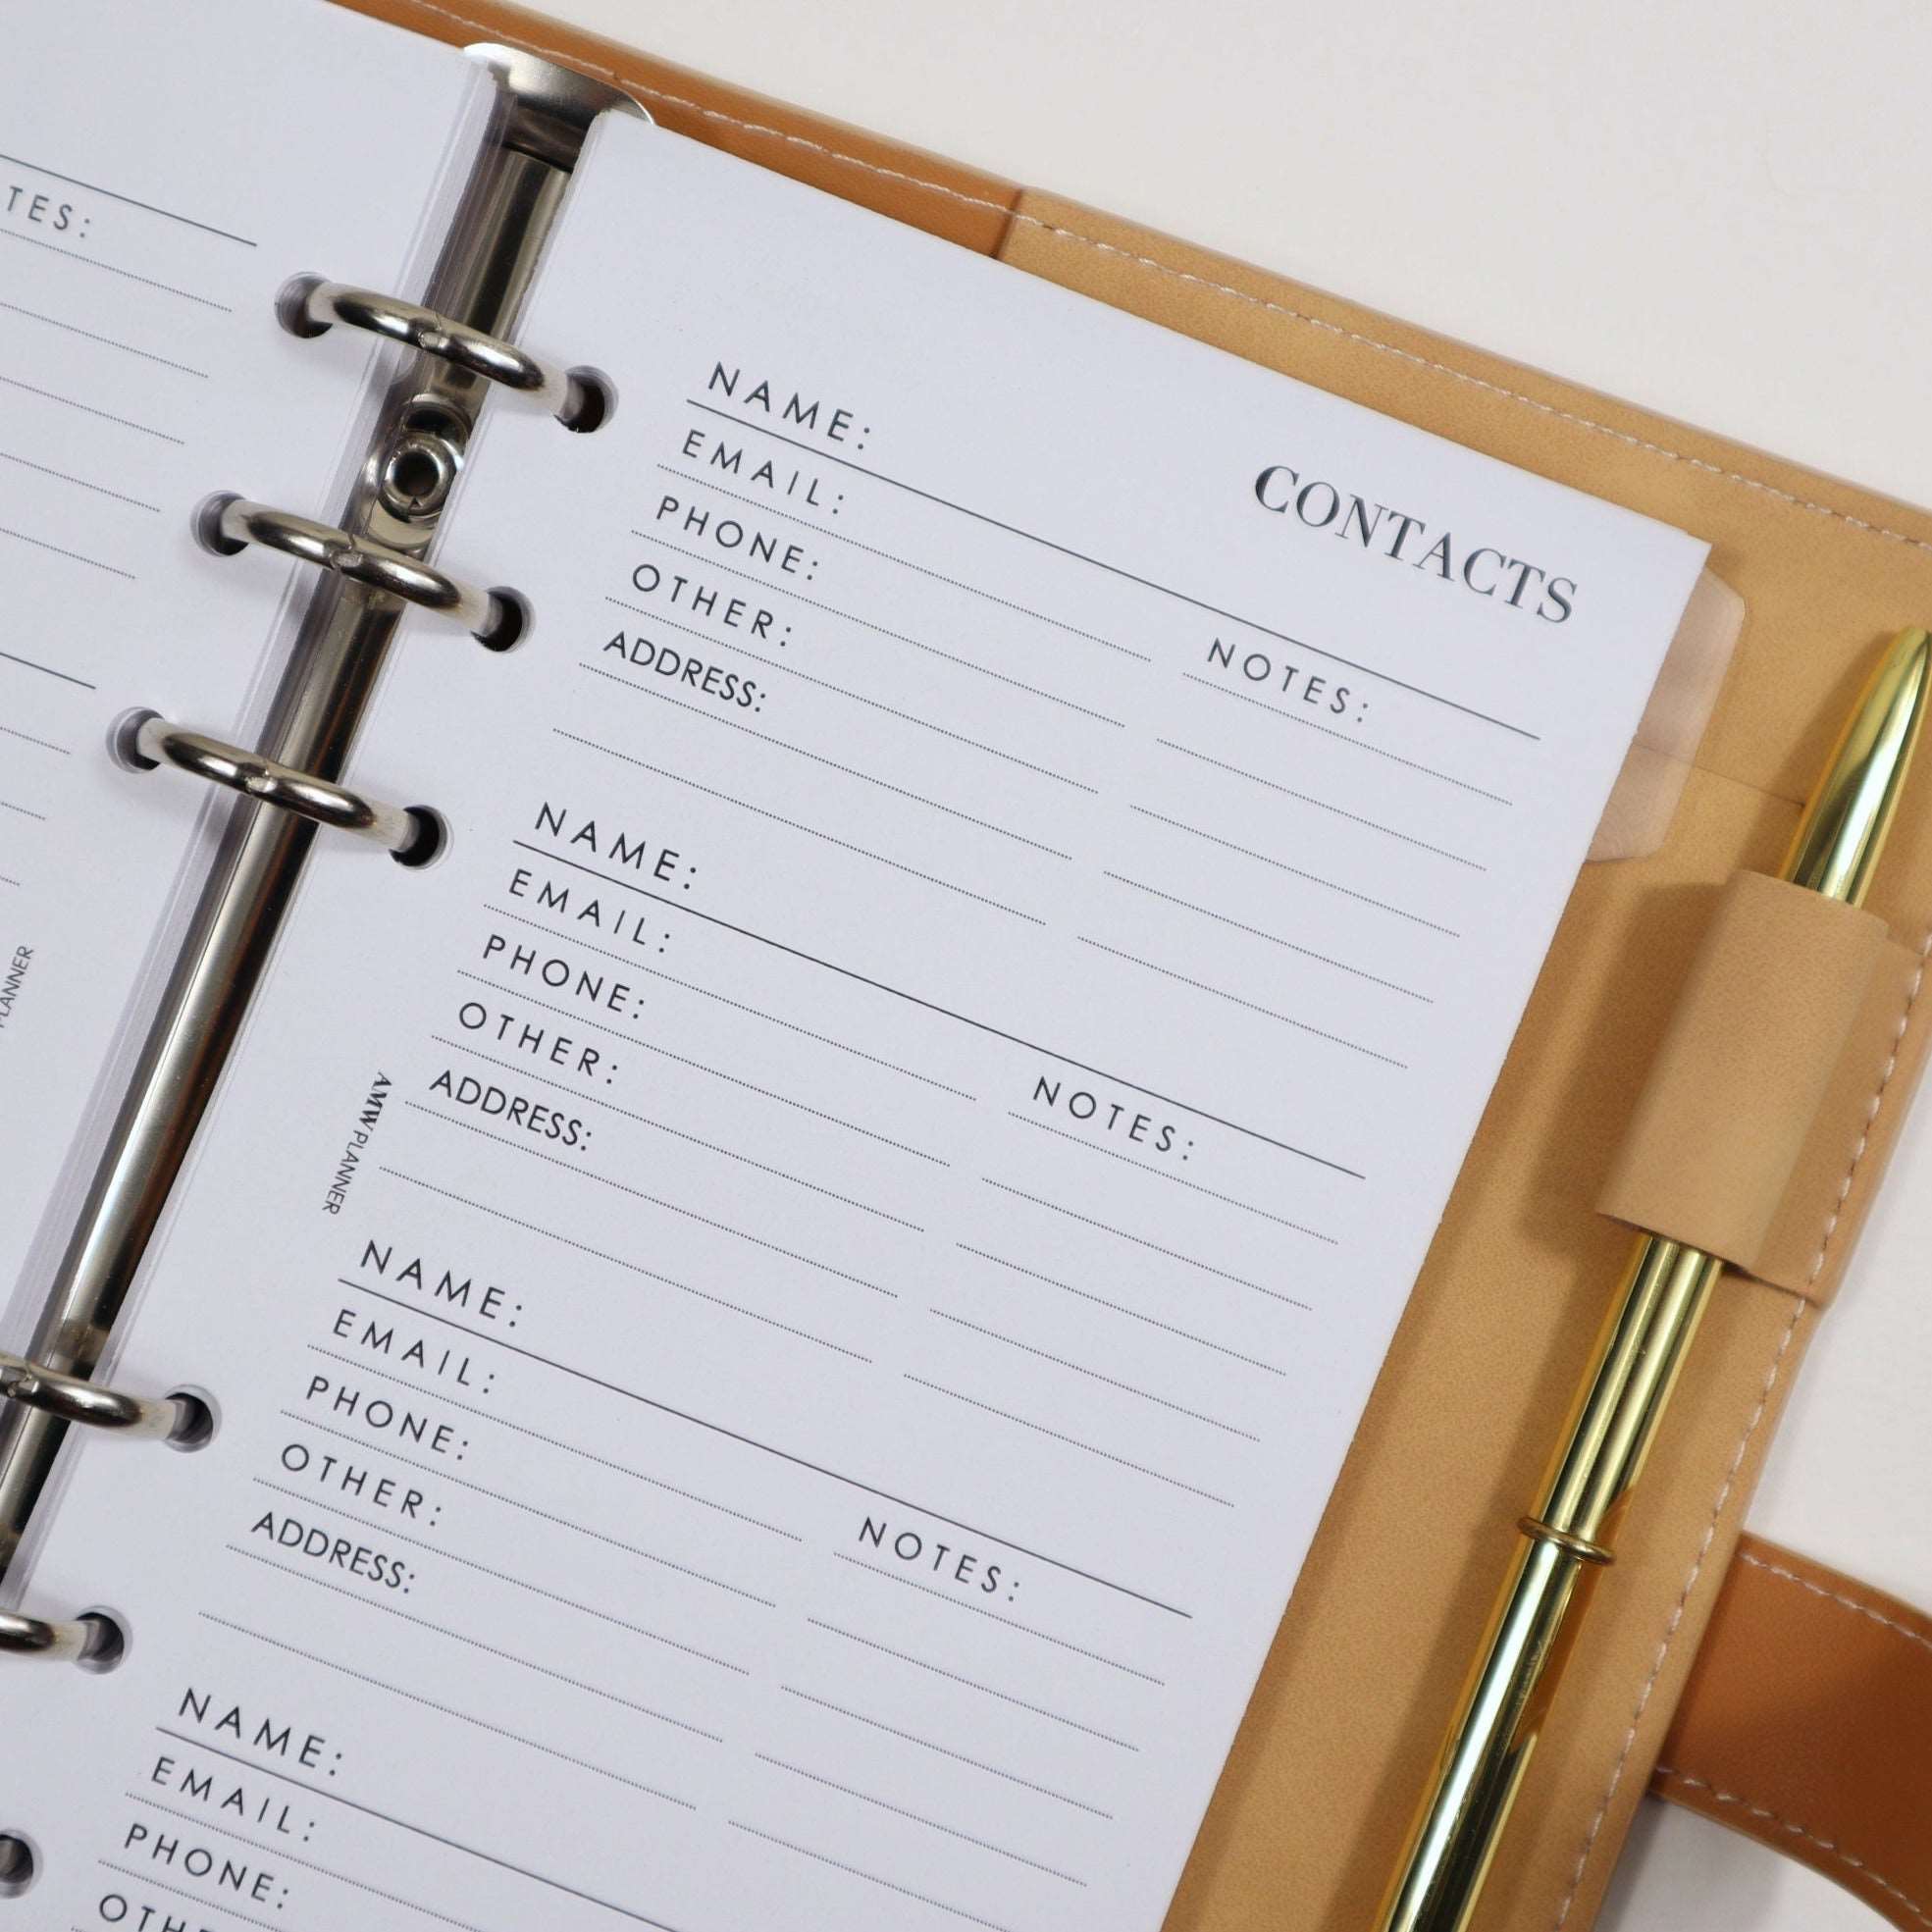 TES:
PLANNER
CONTACTS
NAME:
EMAIL:
PHONE:
OTHER:
ADDRESS:
NOTES:
NAME:
EMAIL:
PHONE:
OTHER:
ADDRESS:
NOTES:
AMW PLANNER
NAME:
EMAIL:
PHONE:
OTHER:
ADDRESS:
NOTES:
NAME:
EMAIL:
PHONE:
OTH